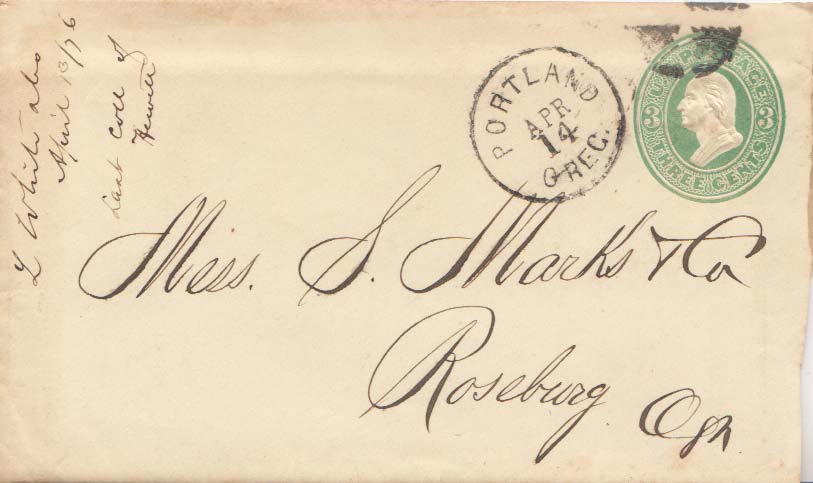 L White
April 13/76
Last Coll of
PORTLAND
APR
14
OREG.
U.S. POSTAGE
3 3
THREE CENTS
Mess. S. Marks & Co
Roseburg Ogn